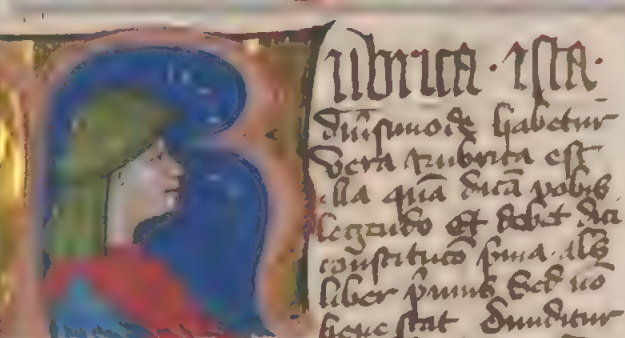 Rubrica · ista ·
diuſimode habetur
Vera Rubrica eſt
illa quā dicā vobis
legendo et debet dici
conſtitucō pma . als
liber pmus Sed nō
bene ſtat Diuiditur